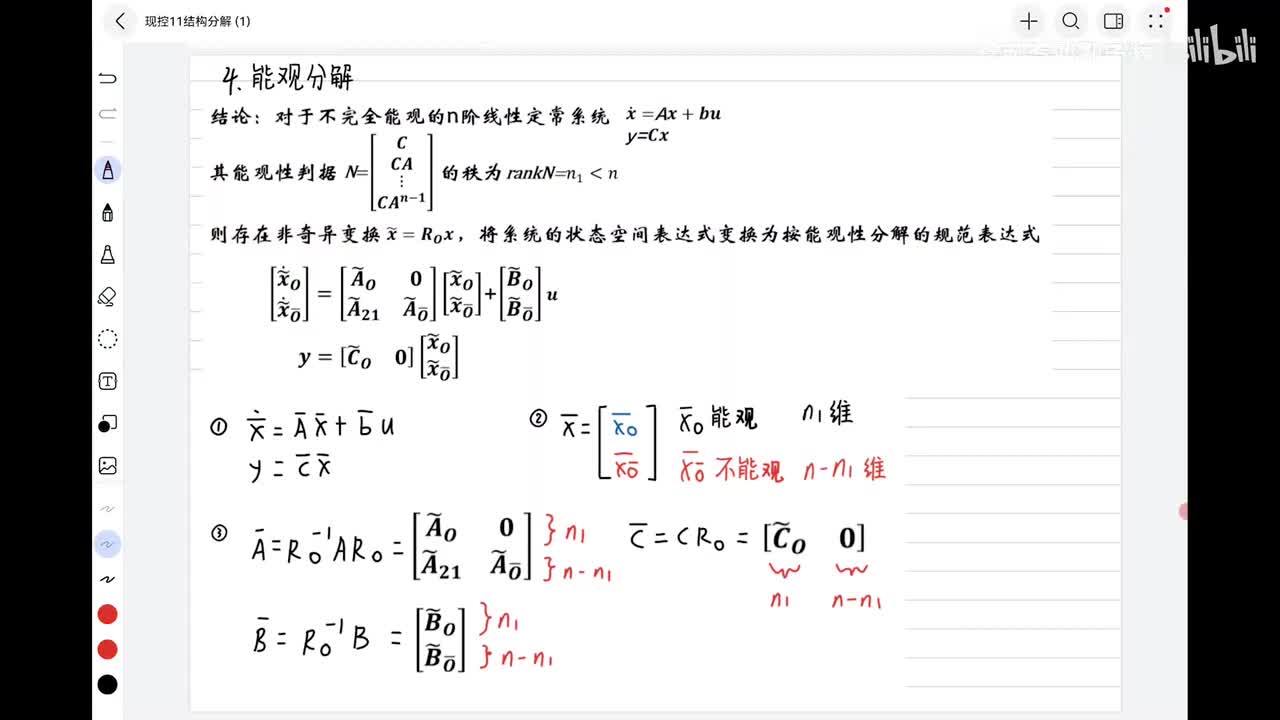 现控11结构分解 (1)
bilibili
4. 能观分解
结论：对于不完全能观的n阶线性定常系统 ẋ=Ax+bu
y=Cx
其能观性判据 N=[C CA ⋮ CAⁿ⁻¹] 的秩为 rankN=n₁ < n
则存在非奇异变换 x̃ = R_O x，将系统的状态空间表达式变换为按能观性分解的规范表达式
[x̃̇_O x̃̇_Ō] = [Ã_O 0 Ã₂₁ Ã_Ō] [x̃_O x̃_Ō] + [B̃_O B̃_Ō] u
y = [C̃_O 0] [x̃_O x̃_Ō]
① x̄̇ = Āx̄ + b̄u
y = c̄x̄
② x̄ = [x̄o x̄ō] x̄o 能观 n₁维
x̄ō 不能观 n-n₁维
③ Ā = Ro⁻¹ARo = [Ã_O 0 Ã₂₁ Ã_Ō] }n₁ }n-n₁
C̄ = CRo = [C̃_O 0] n₁ n-n₁
B̄ = Ro⁻¹B = [B̃_O B̃_Ō] }n₁ }n-n₁